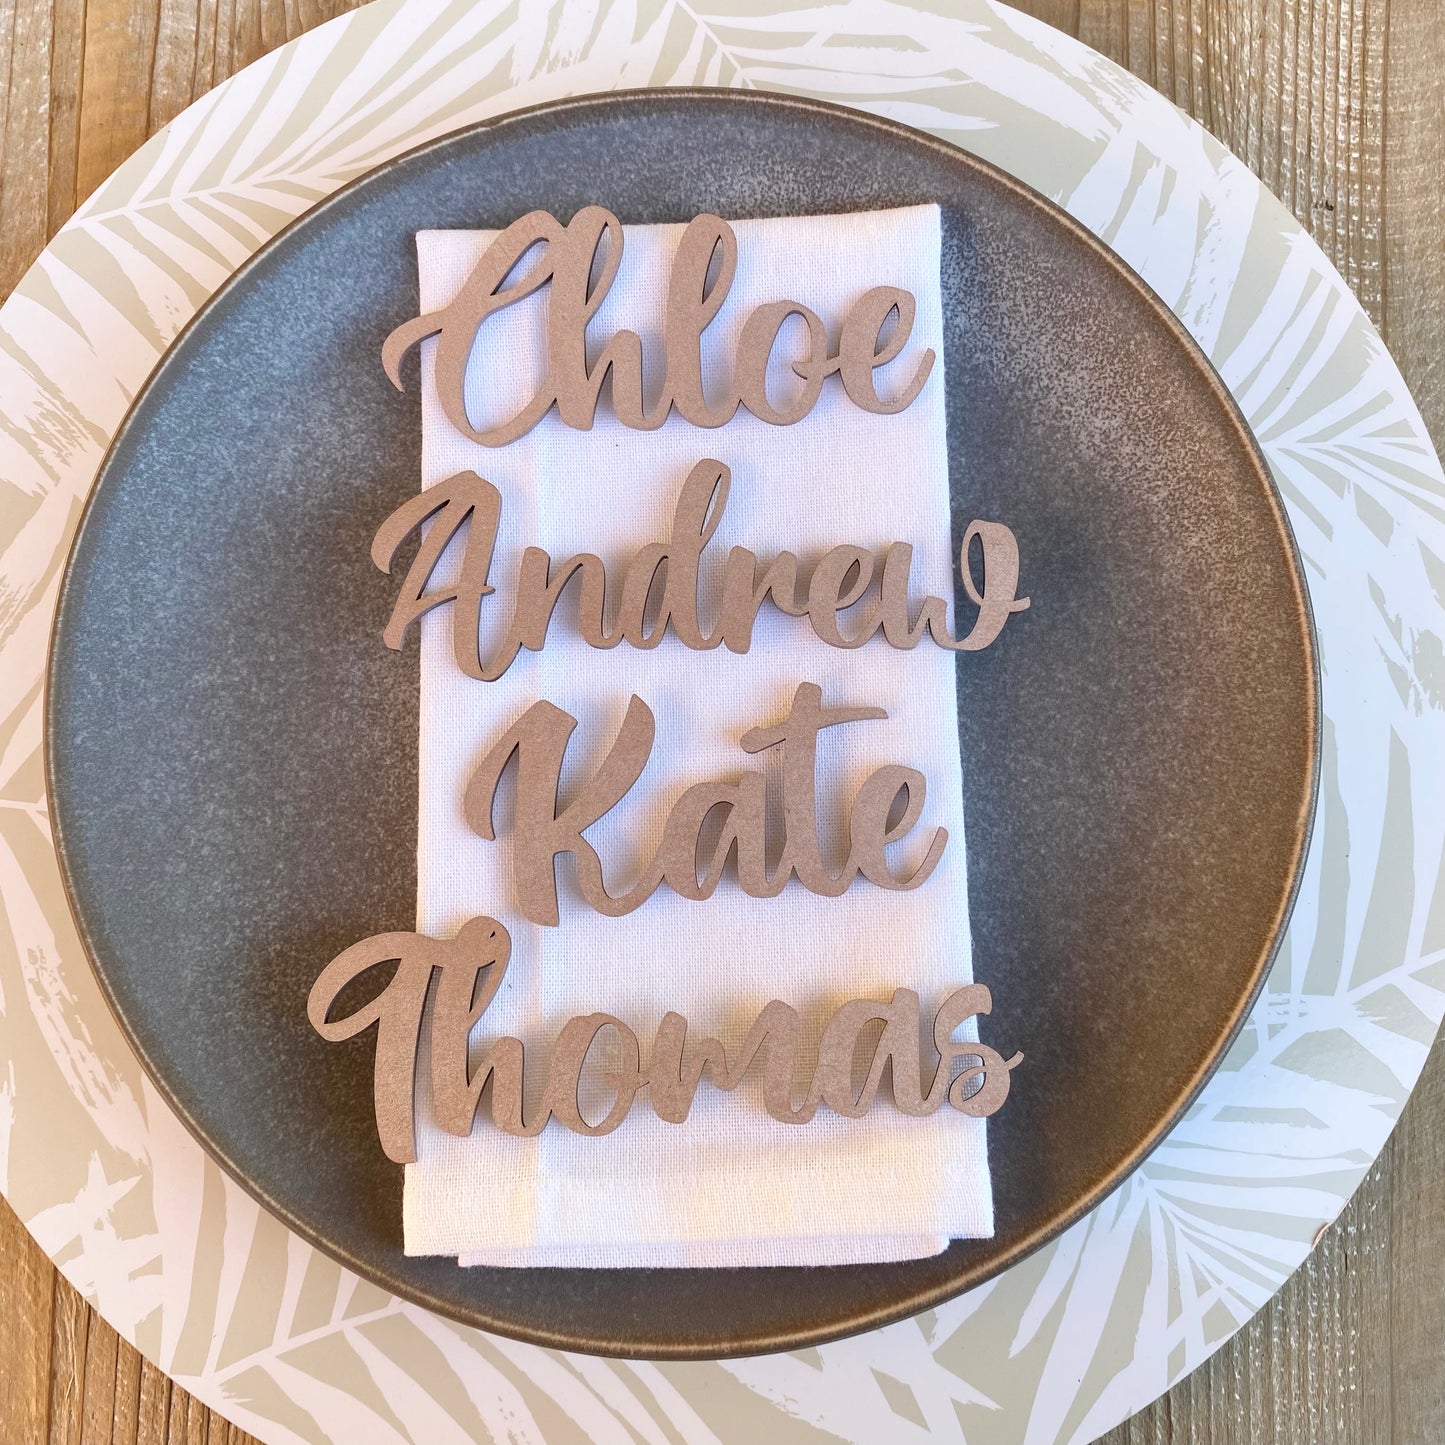 Chloe
Andrew
Kate
Thomas